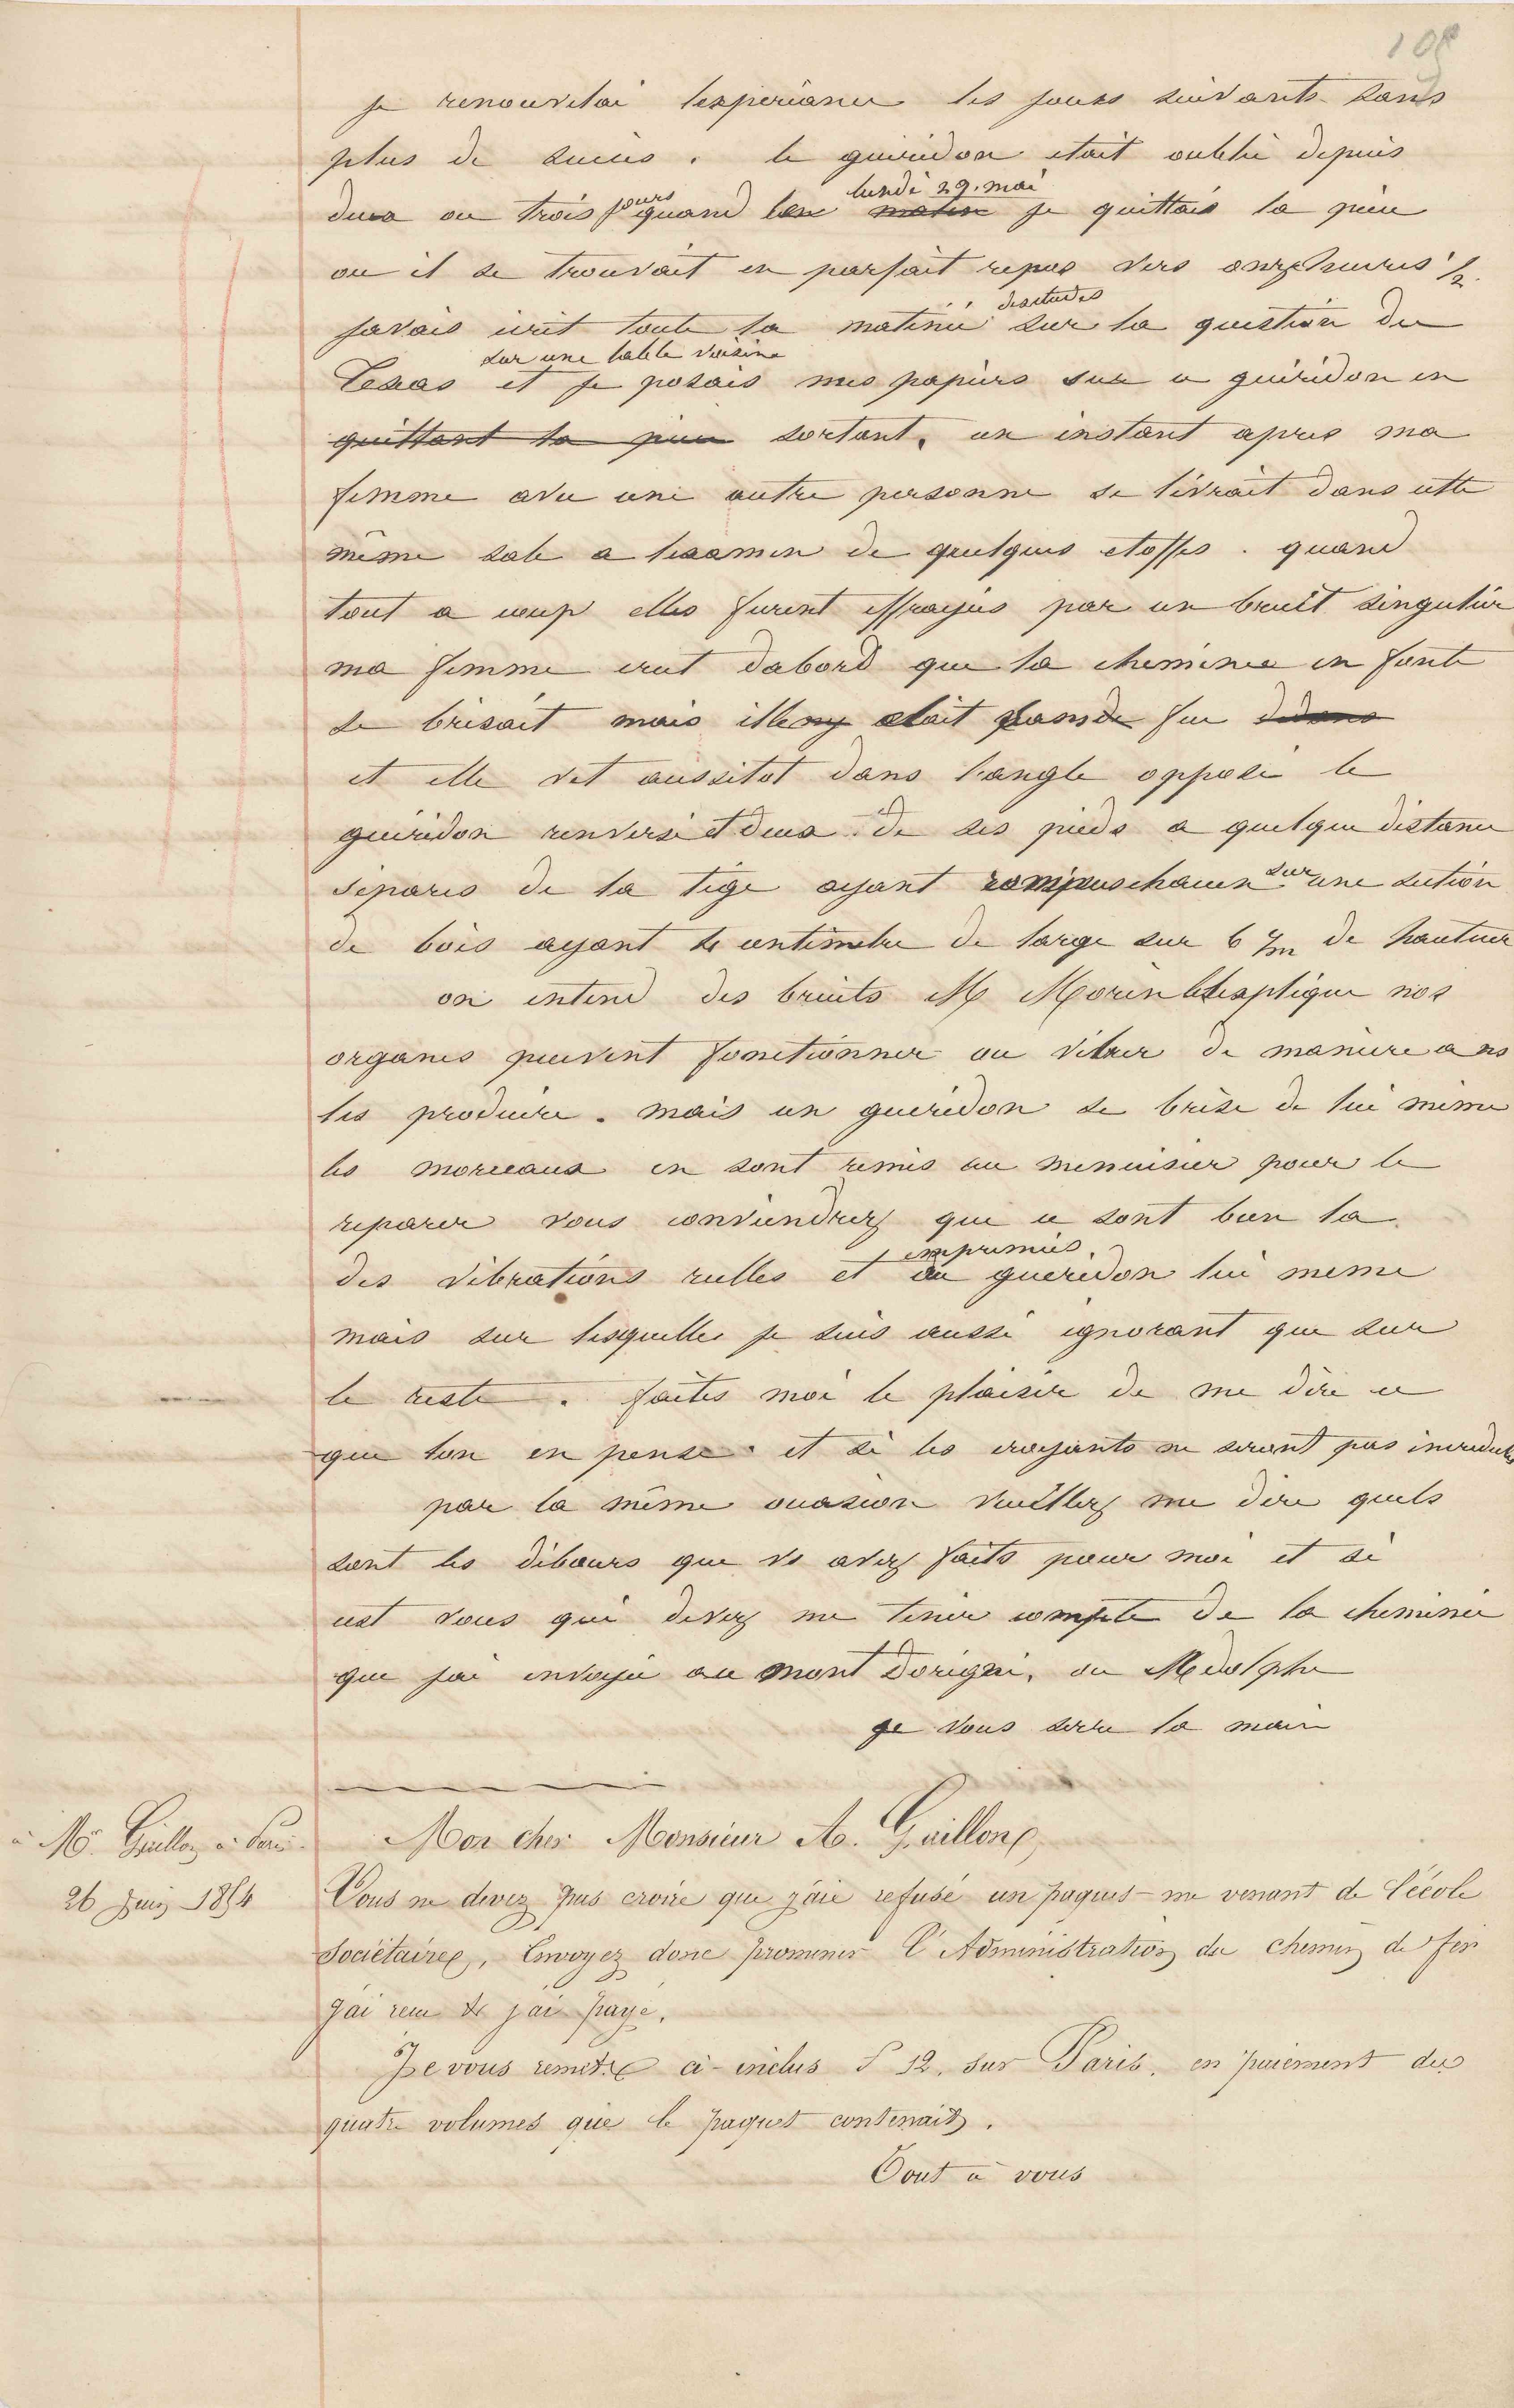 109
je renouvelai lexperiance les jours suivants sans
plus de succes. le gueridon etait oublié depuis
deux ou trois jours quand lundi 29. mai je quittais la piece
ou il se trouvait en parfait repos vers onze heures 1/2.
javais ecrit toute la matinée des etudes sur la question du
Texas sur une table voisine et je posais mes papiers sur ce gueridon en
quittant la piece sortant. un instant apres ma
femme avec une autre personne se livrait dans cette
même sale a lexamen de quelques etoffes. quand
tout a coup elles furent effrayés par un bruit singulier
ma femme crut dabord que la cheminee en fonte
se brisait mais il ny avait pas de feu dedans
et elle vit aussitot dans l'angle opposé le
gueridon renversé et deux de ses pieds a quelque distance
séparés de la tige ayant rompus chacun sur une section
de bois ayant centimetre de large sur 6 c/m de hauteur
on entend des bruits M Morin lexplique nos
organes peuvent fonctionner ou vibrer de maniere a ns
les produire. mais un gueridon se brise de lui même
les morceaux en sont remis au menuisier pour le
reparer vous conviendrez que ce sont bien la
des vibrations reelles et imprimées au gueridon lui meme
mais sur lesquelles je suis aussi ignorant que sur
le reste. faites moi le plaisir de me dire ce
que lon en pense et si les croyants ne seront pas incredules
par la même occasion veuillez me dire quels
sont les débours que vs avez faits pour moi et si
cest vous qui devez me tenir compte de la cheminée
que jai envoyée au mont Dorigni, ou
je vous serre la main
à Mr. Guillon à Paris.
26 Juin 1854
Mon cher Monsieur A. Guillon,
Vous ne devez pas croire que j'aie refusé un paquet me venant de l'école
Sociétaire, Envoyez donc promener l'Administration du chemin de fer
j'ai reçu & j'ai payé.
Je vous remets ci-inclus F 12. sur Paris, en paiement des
quatre volumes que le paquet contenait.
Tout à vous